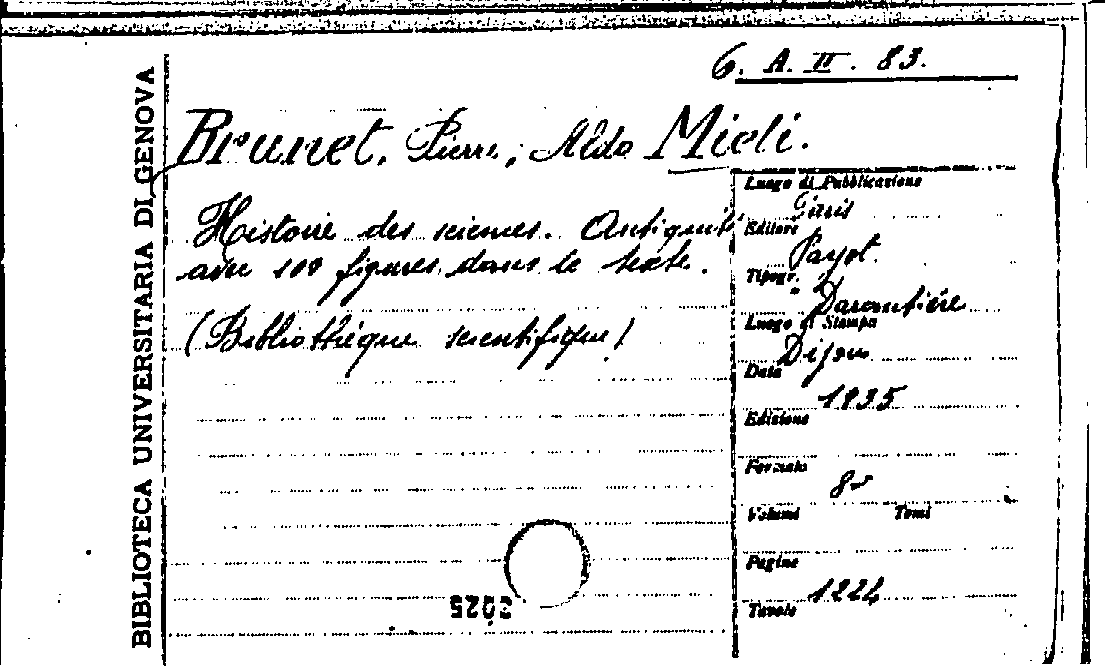 6. A. II. 83.
BIBLIOTECA UNIVERSITARIA DI GENOVA
Brunet, Pierre; Aldo Mieli.
Histoire des sciences. Antiquité
avec 100 figures dans le texte.
(Bibliothèque scientifique)
Luogo di Pubblicazione
Paris
Editore
Payot.
Tipogr.
Darantière
Luogo di Stampa
Dijon
Data
1935
Edizione
Formato
8°
Volumi Tomi
Pagine
1224
Tavole
2025